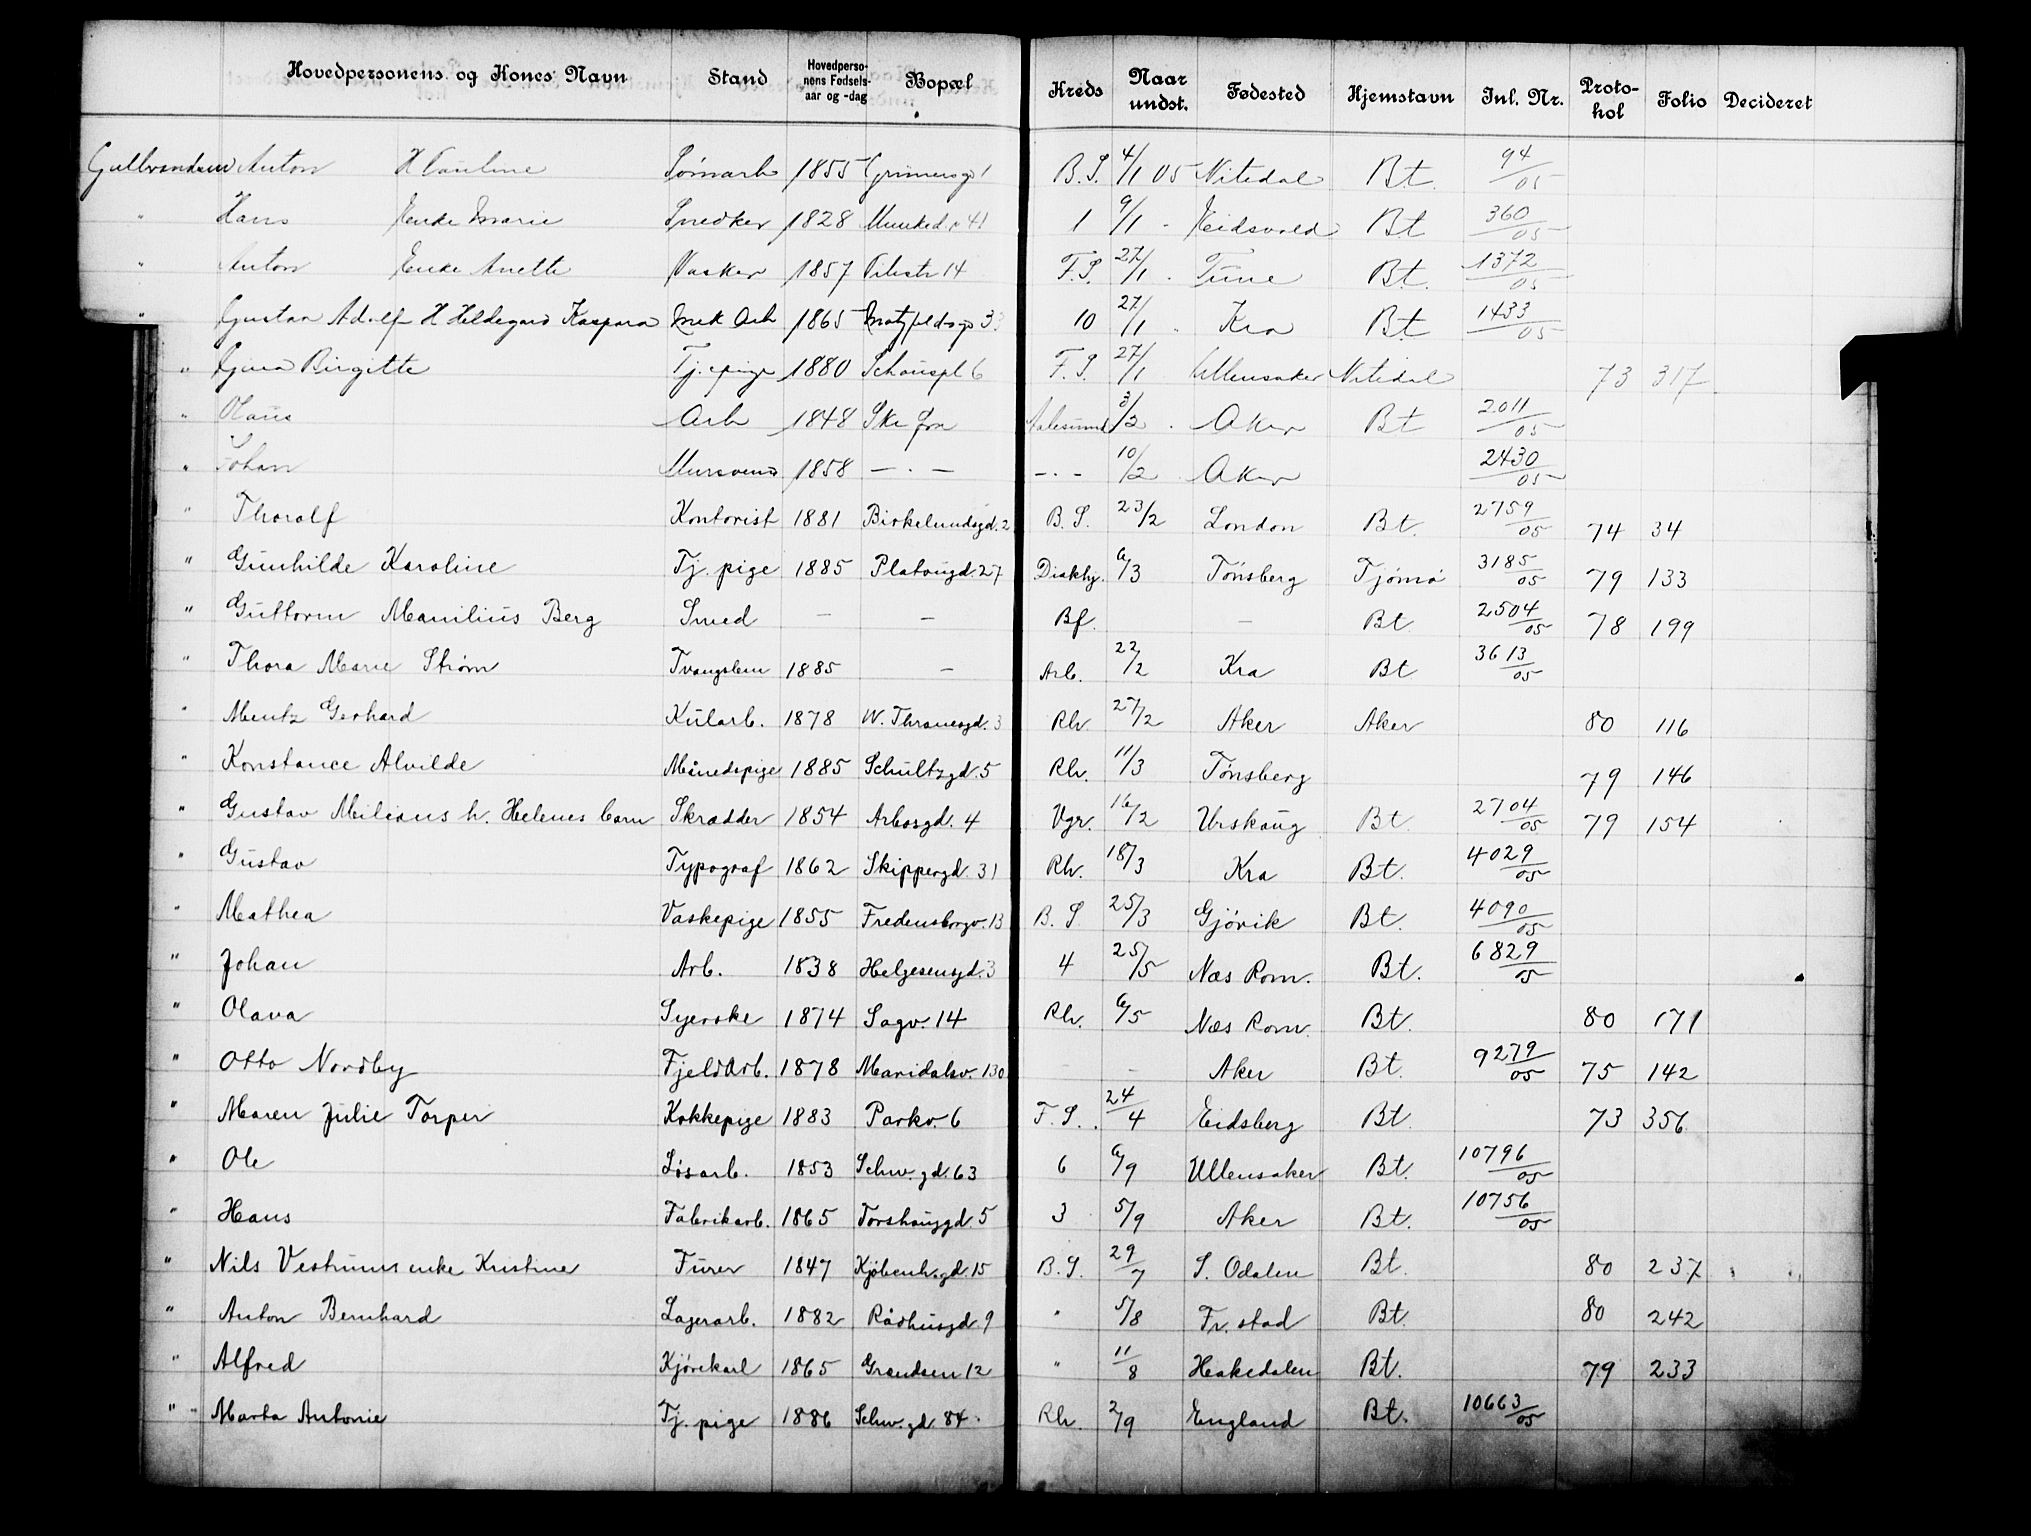 Hovedpersonens og Kones Navn Stand Hovedperso-nens Fødsels-aar og -dag Bopæl Kreds Naar undst. Fødested Hjemstavn Inl. Nr. Proto-kol Folio Decideret
Gulbrandsen Anton H Pauline Sømarb 1855 1 B.S. 4/1 05 Nitedal Bt. 94/05
" Hans Enke Marie Snedker 1828 Munked. 41 1 9/1 - Eidsvold Bt 360/05
" Anton Enke Anette Vasker 1857 Pilestr 14 F.S. 27/1 - Tune Bt. 1372/05
" Gustav Adolf H Hildegard Kaspara Mek Arb 1865 33 10 27/1 - Kra Bt 1433/05
" Gina Birgitte Tj. pige 1880 Schouspl 6 F.S. 27/1 Ullensaker Nitedal 73 317
" Olaus Arb 1848 Ske fra Aalesund 3/2 - Aker Bt 2011/05
" Johan Mursvend 1858 - . - - . - 10/2 Aker 2430/05
" Thoralf Kontorist 1881 Birkelundsgd. 2 B.S. 23/2 London Bt. 2759/05 74 34
" Gunhilde Karoline Tj. pige 1885 Platougd. 27 Diakhj. 6/3 Tönsberg Tjömö 3185/05 79 133
" Guttorm Manilius Berg Smed - - Bf. - Bt 2504/05 78 199
" Thora Marie Strøm Tvangslem 1885 - Arb. 22/2 Kra Bt 3613/05
" Mentz Gerhard Kularb. 1878 W. Thranesgd. 3 Rh. 27/2 Aker Aker 80 116
" Konstance Alvilde Månedspige 1885 Schultzgd. 5 Rh. 11/3 Tönsberg 79 146
" Gustav Milians h. Helenes barn Skrædder 1854 Arbosgd. 4 Vgr. 16/2 Urskoug Bt. 2704/05 79 154
" Gustav Typograf 1862 Skippergd. 31 Rh. 18/3 Kra Bt. 4029/05
" Mathea Vaskepige 1855 Fredensborgv. 13 B.S 25/3 Gjövik Bt. 4090/05
" Johan Arb. 1838 Helgesensgd. 3 4 25/5 Næs Rom. Bt. 6829/05
" Olava Syerske 1874 Sagv. 14 Rh. 6/5 Næs Rom. Bt. 80 171
" Otto Nordby Fjeldarb. 1878 Maridalsv. 130 - - Aker Bt. 9279/05 75 142
" Maren Julie Torper Kokkepige 1883 Parkv. 6 F.S. 24/4 Eidsberg Bt. 73 356
" Ole Løsarb. 1853 Schw. gd. 63 6 6/9 Ullensaker Bt. 10796/05
" Hans Fabrikarb. 1865 Torshauggd. 5 3 5/9 Aker Bt. 10756/05
" Nils Vestrums enke Kristine Furer 1847 Kjöbenh.gd. 15 B.S. 29/7 S. Odalen Bt. 80 237
" Anton Bernhard Lagerarb. 1882 Rådhusgd. 9 " 5/8 Fr.stad Bt. 80 242
" Alfred Kjörekarl 1865 Grændsen 12 " 11/8 Hakedalen Bt. 79 233
" Marta Antonie Tj. pige 1886 Schw. gd. 84 Rh. 2/9 England Bt. 10663/05